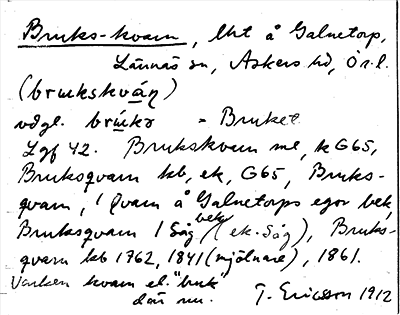 Bruks-kvarn, lht å Galnetorp,
Lännäs sn, Askers hd, Ö.r.l.
(brukskván)
vdgl. brúks = Bruket
Lgf 42. Brukskvarn me, k G65,
Bruksqvarn kb, ek, G65, Bruks-
qvarn, 1 Qvarn å Galnetorps egor bek,
Bruksqvarn 1 Såg bek (ek. Såg), Bruks-
qvarn kb 1762, 1841 (mjölnare), 1861.
Varken kvarn el. "bruk"
där nu. T. Ericsson 1912